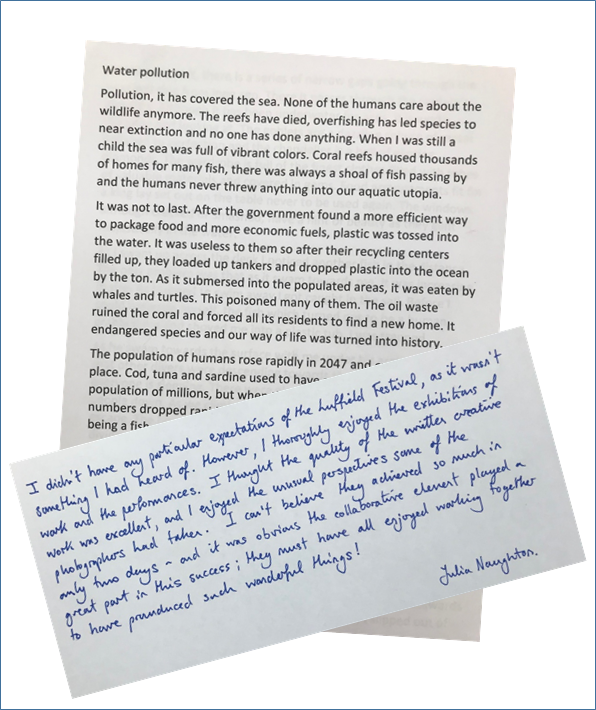 Water pollution
Pollution, it has covered the sea. None of the humans care about the
wildlife anymore. The reefs have died, overfishing has led species to
near extinction and no one has done anything. When I was still a
child the sea was full of vibrant colors. Coral reefs housed thousands
of homes for many fish, there was always a shoal of fish passing by
and the humans never threw anything into our aquatic utopia.
It was not to last. After the government found a more efficient way
to package food and more economic fuels, plastic was tossed into
the water. It was useless to them so after their recycling centers
filled up, they loaded up tankers and dropped plastic into the ocean
by the ton. As it submersed into the populated areas, it was eaten by
whales and turtles. This poisoned many of them. The oil waste
ruined the coral and forced all its residents to find a new home. It
endangered species and our way of life was turned into history.
The population of humans rose rapidly in 2047 and
place. Cod, tuna and sardine used to have
population of millions, but when
numbers dropped
being a fish
I didn't have any particular expectations of the Luffield Festival, as it wasn't
something I had heard of. However, I thoroughly enjoyed the exhibitions of
work and the performances. I thought the quality of the written creative
work was excellent, and I enjoyed the unusual perspectives some of the
photographers had taken. I can't believe they achieved so much in
only two days - and it was obvious the collaborative element played a
great part in this success; they must have all enjoyed working together
to have produced such wonderful things!
Julia Naughton.